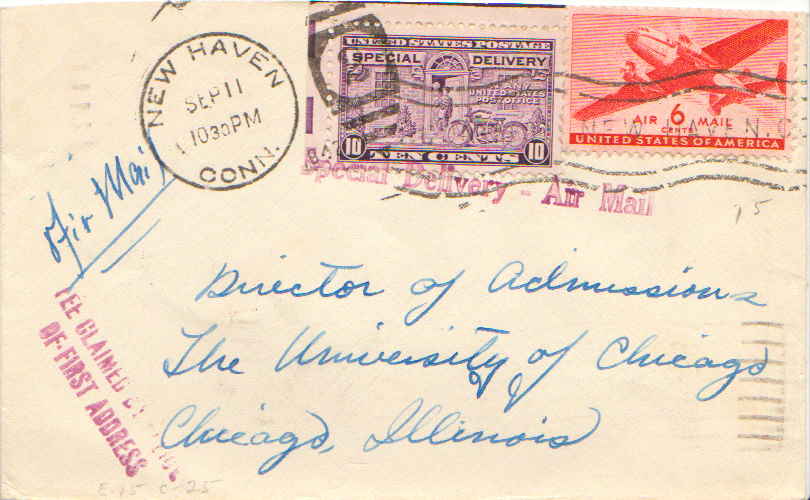 NEW HAVEN
SEP 11
10 30 PM
CONN.
UNITED STATES POSTAGE
SPECIAL DELIVERY
AT ANY
UNITED STATES
POST OFFICE
10 TEN CENTS 10
AIR 6 MAIL
CENTS
UNITED STATES OF AMERICA
NEW HAVEN.
Special Delivery - Air Mail
Air Mail
15
Director of Admissions
The University of Chicago
Chicago, Illinois
FEE CLAIMED BY OFFICE
OF FIRST ADDRESS
E-15 C-25